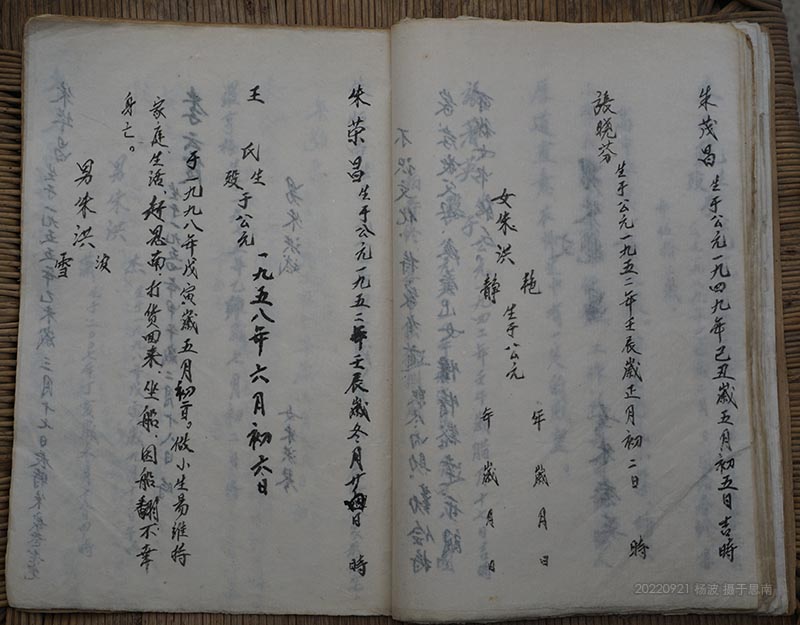 朱茂昌生于公元一九四九年己丑歲五月初五日吉時
張曉芬生于公元一九五二年壬辰歲正月初二日 時
女朱洪
艳
静
生于公元
年 歲 月 日
年 歲 月 日
朱荣昌生于公元一九五二年壬辰歲冬月廿四日 時
王 氏生
殁
于公元
一九五八年六月初六日
于一九九八年戊寅歲五月初二日。做小生易维持
家庭生活,赶思南,打货回来,坐船,因船翻不幸
身亡。
男朱洪
波
雪
20220921 杨波 摄于思南